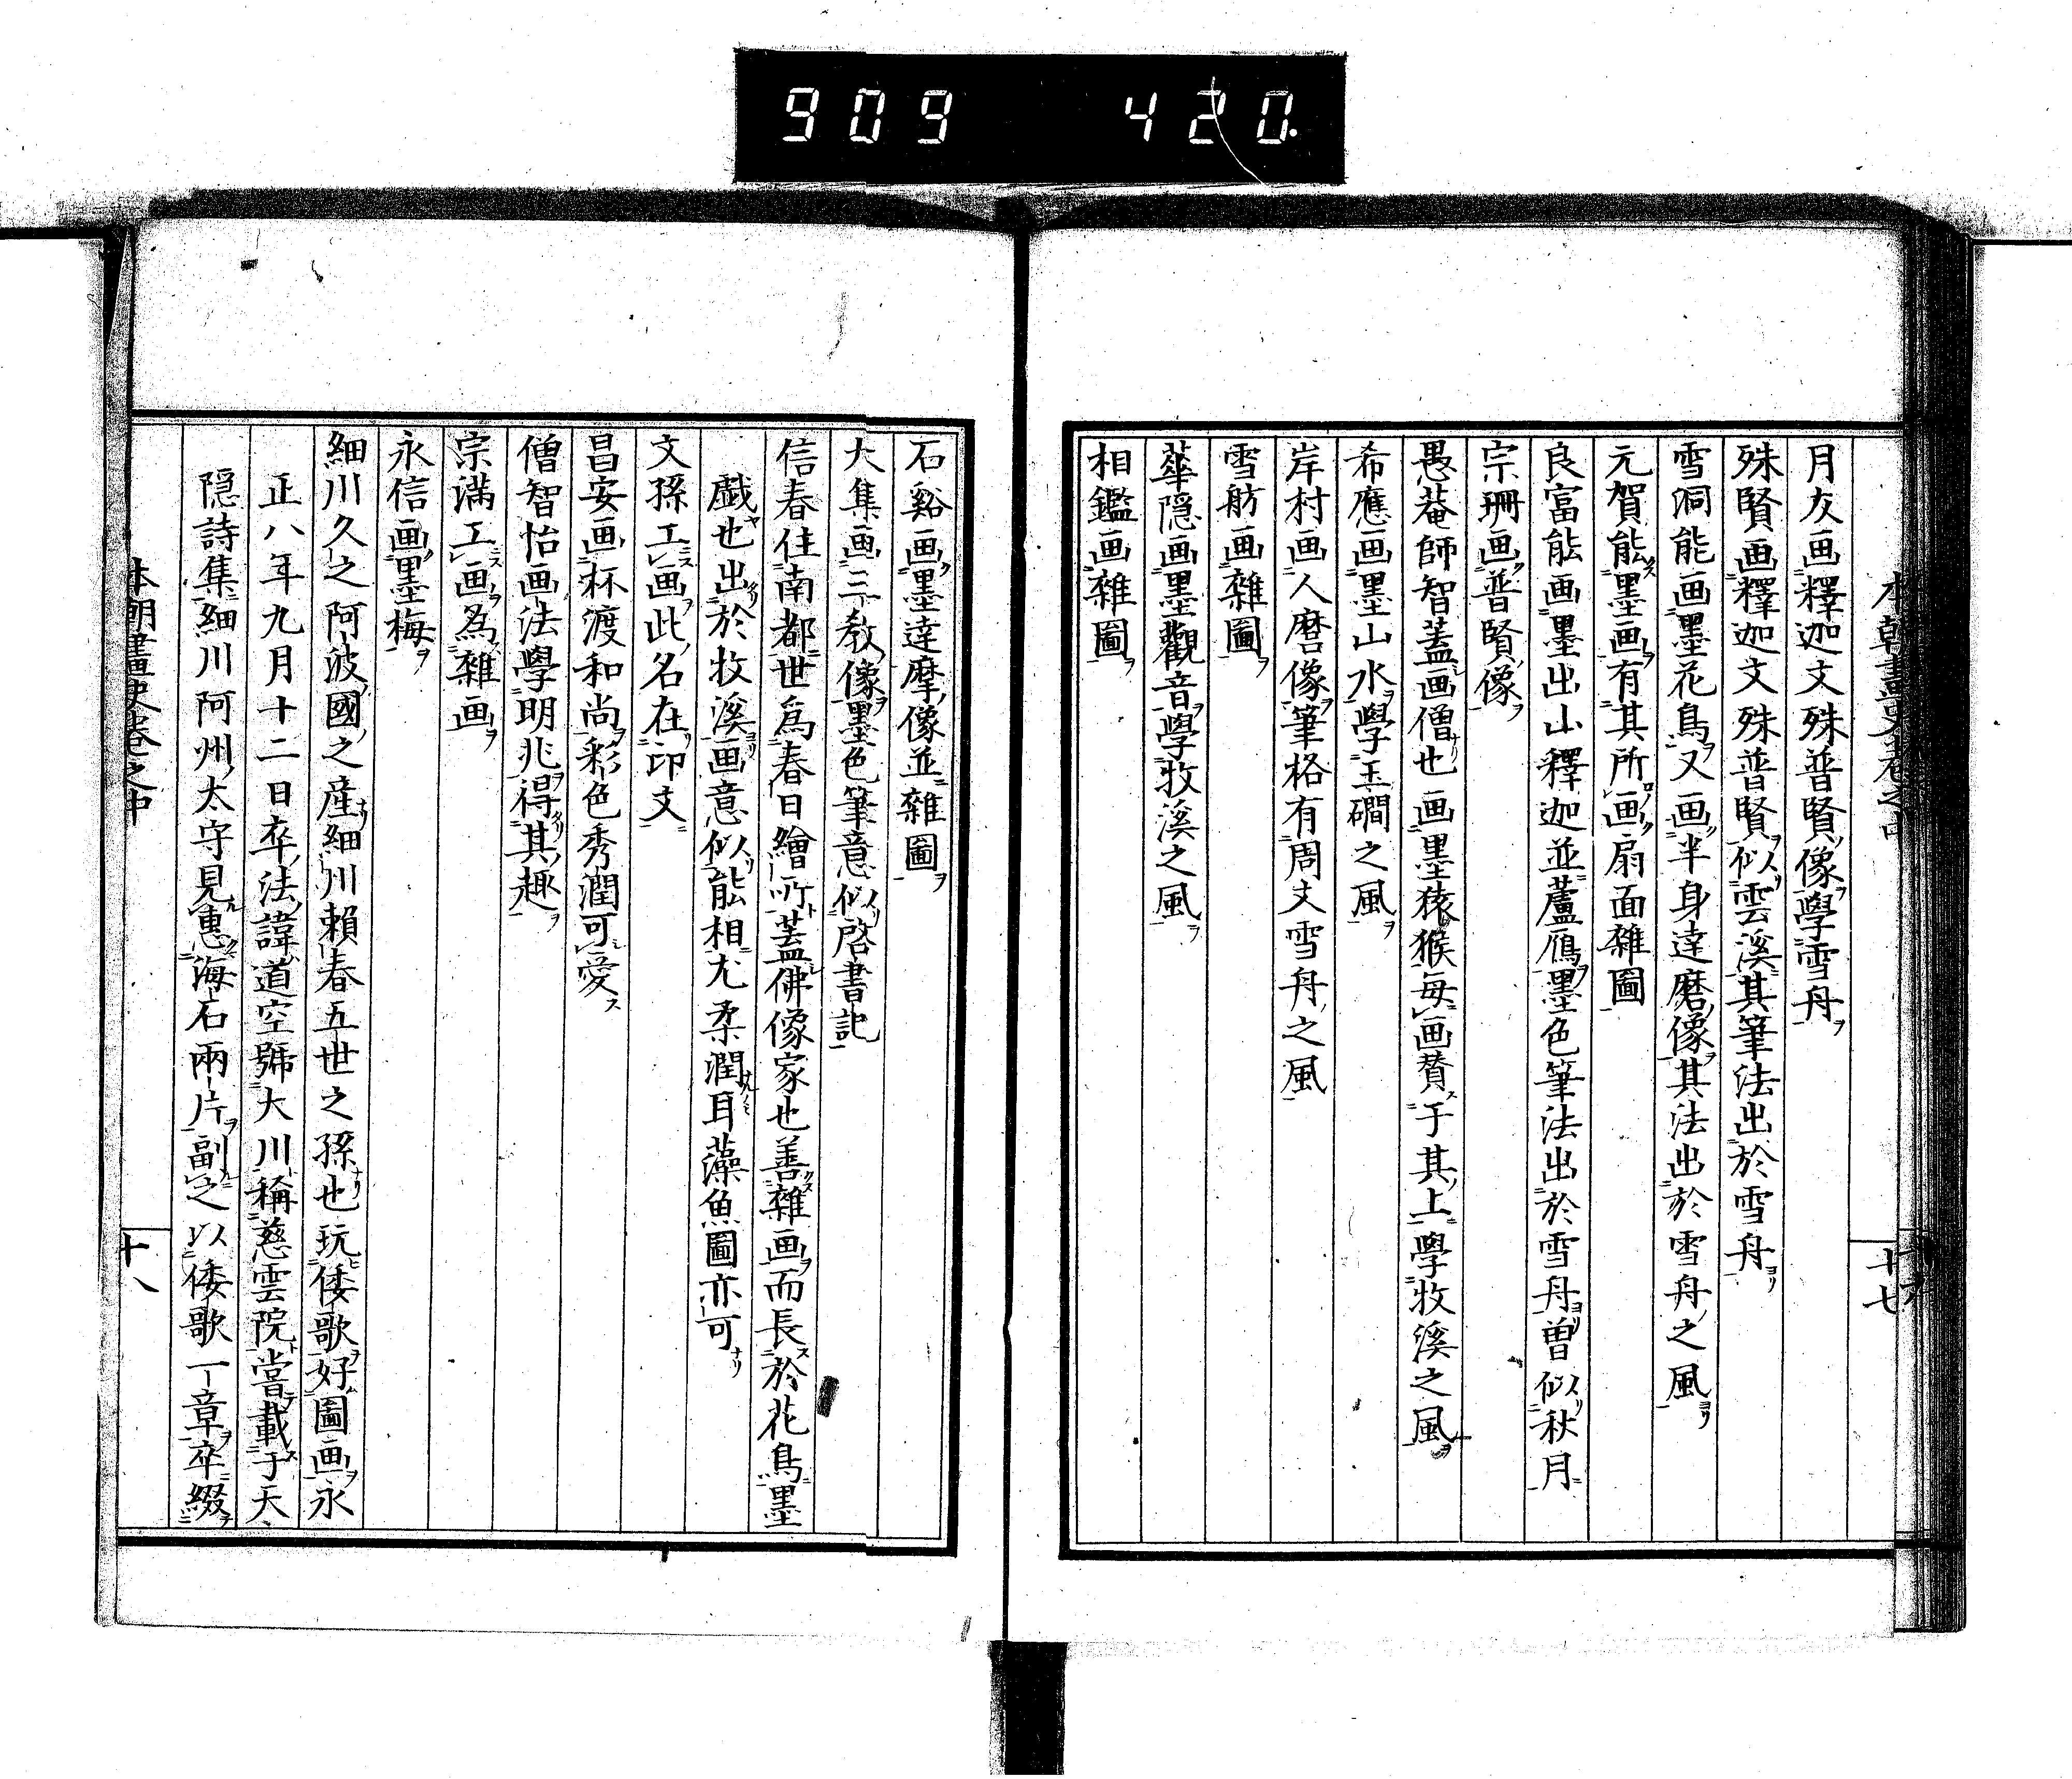 909 420.
本朝畫史卷之中
十七
月友画釋迦文殊普賢像學雪舟
殊賢画釋迦文殊普賢似雲溪其筆法出於雪舟
雪洞能画墨花鳥又画半身達磨像其法出於雪舟之風
元賀能墨画有其所画扇面雜圖
良富能画墨出山釋迦並蘆鴈墨色筆法出於雪舟曽似秋月
宗珊画普賢像
愚菴師智蓋画僧也画墨猿猴每画賛于其上學牧溪之風
希應画墨山水學玉磵之風
岸村画人麿像筆格有周文雪舟之風
雪舫画雜圖
華隠画墨觀音學牧溪之風
相鑑画雜圖
石谿画墨達摩像並雜圖
大集画三教像墨色筆意似啓書記
信春住南都世爲春日繪所蓋佛像家也善雜画而長於花鳥墨
戯也出於牧溪画意似能相尤柔潤耳藻魚圖亦可
文孫工画此名在印文
昌安画杯渡和尚彩色秀潤可愛
僧智怡画法學明兆得其趣
宗滿工画爲雜画
永信画墨梅
細川久之阿波國之産細川頼春五世之孫也玩倭歌好圖画永
正八年九月十二日卒法諱道空號大川稱慈雲院嘗載于天
隠詩集細川阿州太守見惠海石兩片副之以倭歌一章卒綴
本朝畫史卷之中
十八